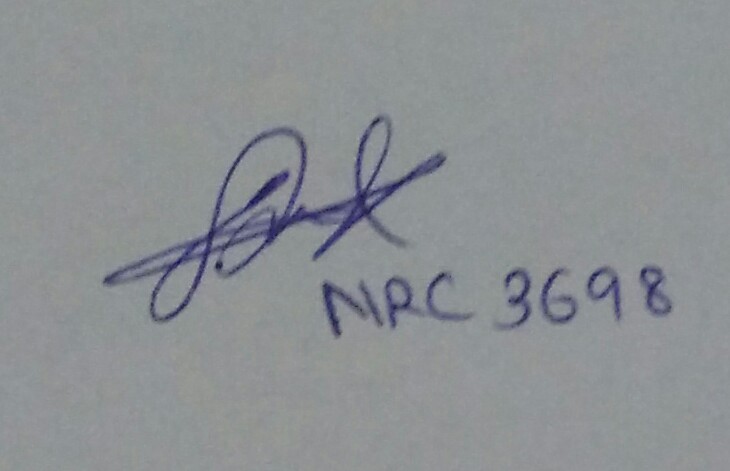 NRC 3698